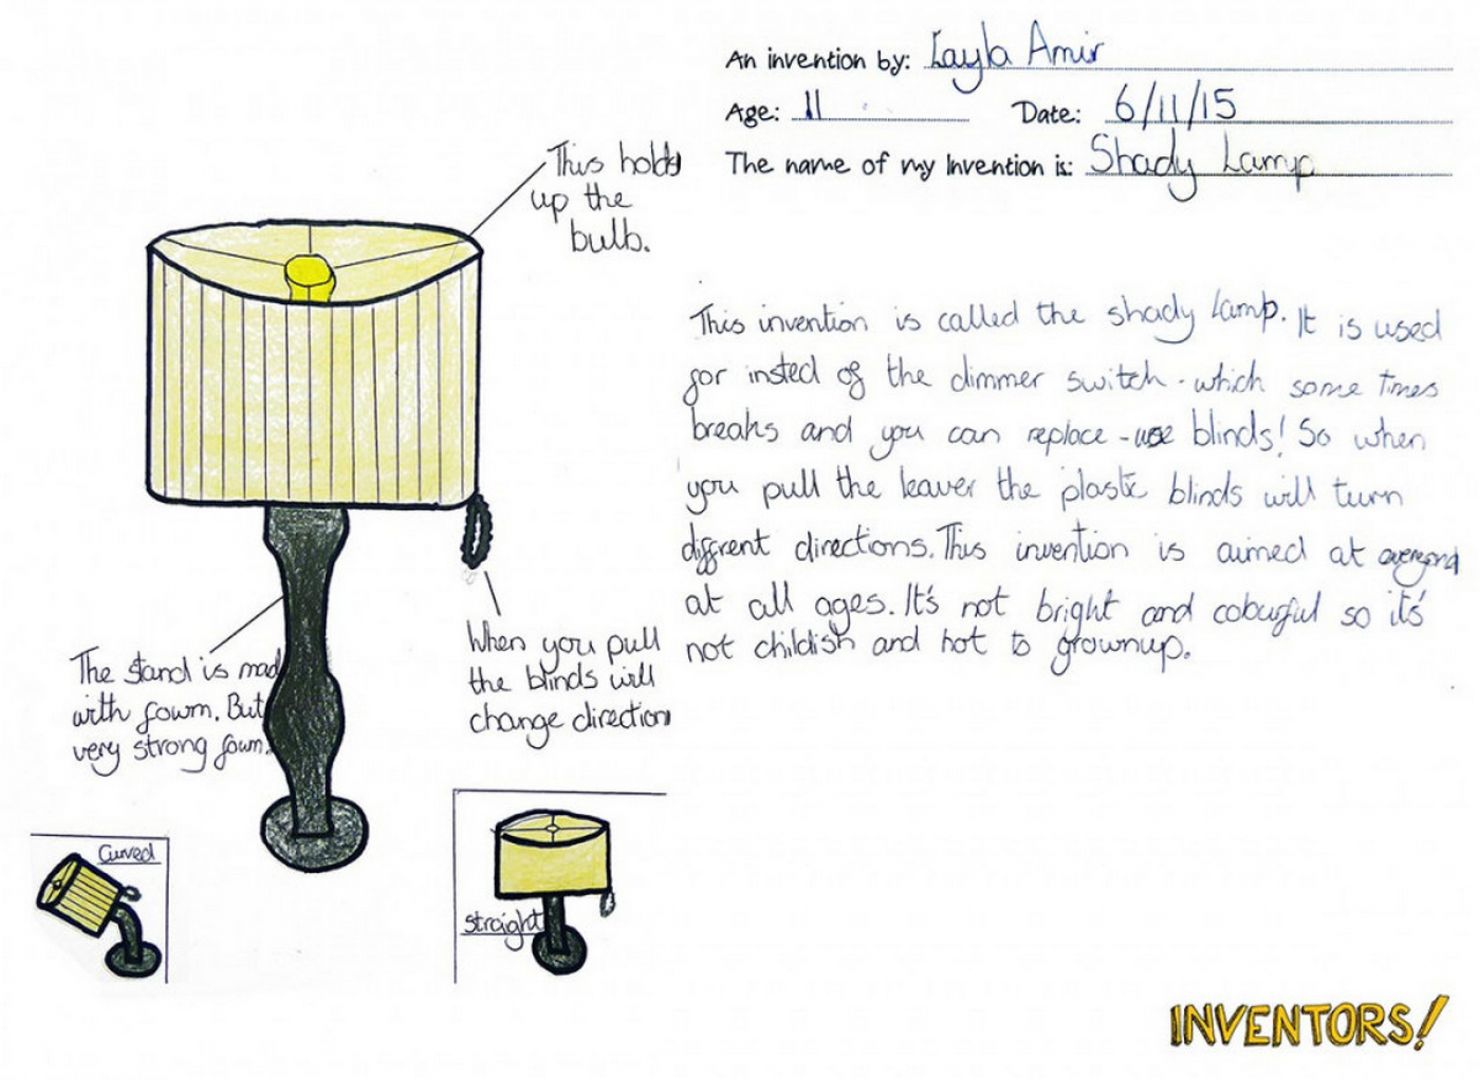 An invention by: Layla Amir
Age: 11 Date: 6/11/15
The name of my Invention is: Shady Lamp
This holds
up the
bulb.
This invention is called the shady Lamp. It is used
for insted of the dimmer switch - which some times
breaks and you can replace - use blinds! So when
you pull the leaver the plastic blinds will turn
diffrent directions. This invention is aimed at
at all ages. It's not bright and colourful so it's
not childish and not to grownup.
When you pull
the blinds will
change direction
The stand is mad
with fowm. But
very strong fowm.
Curved
straight
INVENTORS!